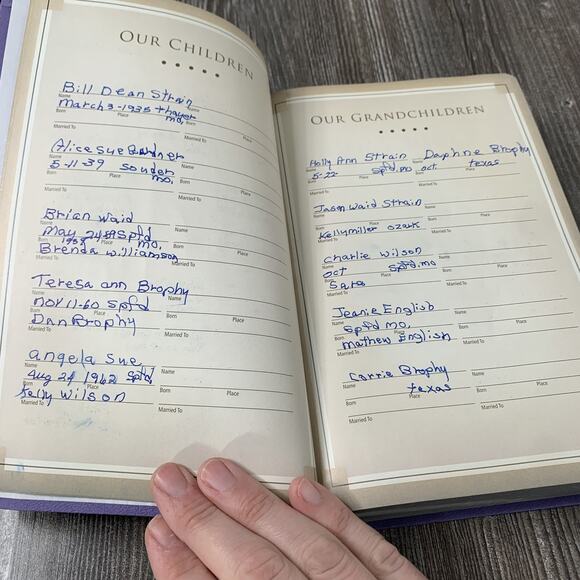 OUR CHILDREN
Bill Dean Strain
Name Name
March 3-1935 thayer mo,
Born Place Born Place
Married To Married To
Alice Sue Gardner
Name Name
5-11-39 souder mo,
Born Place Born Place
Married To Married To
Brian Waid
Name Name
May 24 1959 Spfd mo,
Born Place Born Place
Brenda Williamson
Married To Married To
Teresa ann Brophy
Name Name
NOV 11-60 Spfd
Born Place Born Place
Dan Brophy
Married To Married To
angela sue
Name Name
Aug 21 1962 Spfd,
Born Place Born Place
Kelly Wilson
Married To Married To
OUR GRANDCHILDREN
Holly Ann Strain Daphne Brophy
Name Name
5-22 spfd.mo oct. texas
Born Place Born Place
Married To Married To
Jason Waid Strain
Name Name
Born Place Born Place
Kelly miller ozark
Married To Married To
Charlie Wilson
Name Name
oct spfd.mo
Born Place Born Place
Sara
Married To Married To
Jeanie English
Name Name
spfd mo,
Born Place Born Place
mathew English
Married To Married To
Carrie Brophy
Name Name
texas
Born Place Born Place
Married To Married To